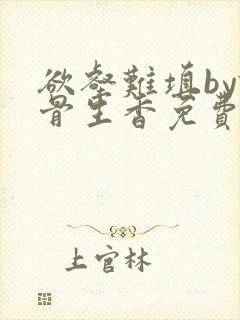 欲壑難填by
骨里香免費
上官林